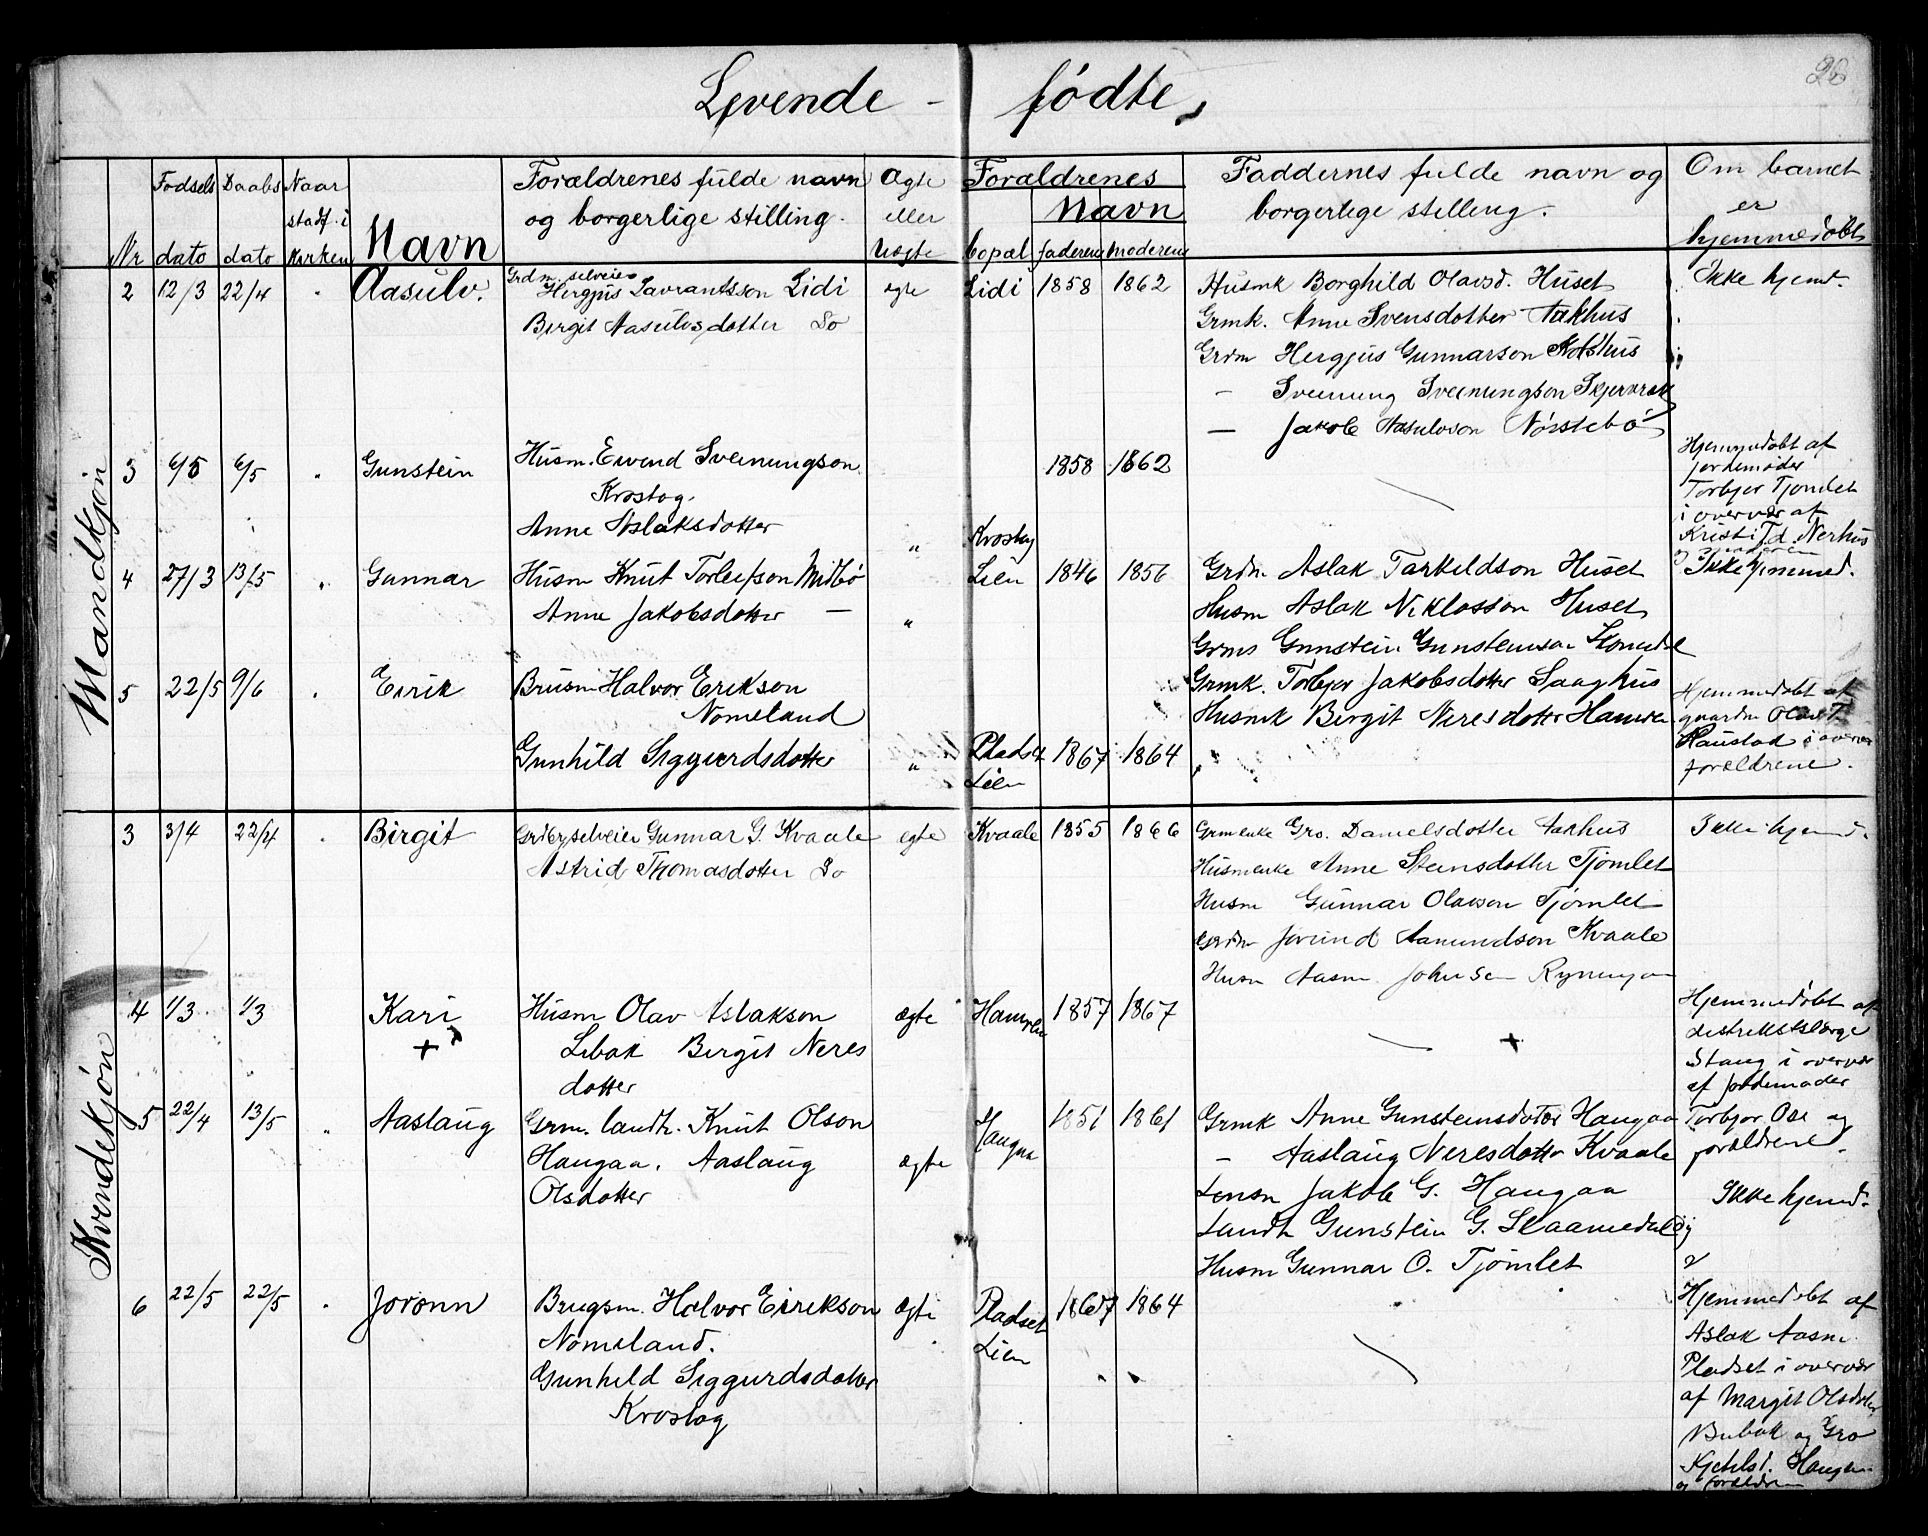 Levende - fødte,
26
Nr
Fødsels dato
Daabs dato
Naar stadf. i Kirken
Navn
Forældrenes fulde navn og borgerlige stilling.
Ægte eller Uægte
Forældrenes
Navn
bopæl faderens moderens
Faddernes fulde navn og borgerlige stilling.
Om barnet er hjemmedøbt
Mandkjøn
2 12/3 22/4 Aasulv. Grdm. selveier ægte Lidi 1858 1862 Husmk Borghild Olavsd. Huset Ikke hjemd.
Hergjus Tavrantsson Lidi
Birgit Aasulvsdotter Do Grmk. Anne Svensdotter Aakhus
Grdm Hergjus Gunnarson
— Sveinung Sveinungson
— Jakob Aasulvson Nörstebö
3 6/5 6/5 Gunstein Husm. Eivend Sveinungson 1858 1862 Hjemmedøbt af
Krostog. jordemøder
Torbjør Tjomlet
Anne Aslaksdotter " i overvær af
Kristi Td. Nerhus
og
4 27/3 13/5 Gunnar Husm Knut Torleifson Midbø Lien 1846 1856 Grdm. Aslak Tarkeldson Huset Ikke hjemmed.
Anne Jakobsdotter — " Husm Aslak Niklosson Huset
Gunstein Gunsteinson
5 22/5 9/6 Eirik Brusm Halvor Erikson Grmk. Torbjør Jakobsdotter Haaghus Hjemmedøbt af
Nomeland Husmk Birgit Neresdotter gaardm
Gunhild Siggurdsdotter " Pladset Lien 1867 1864 i overvær
forældrene.
Kvindekjøn
3 3/4 22/4 Birgit selveier Gunnar G. Kvaale ægte Kvaale 1855 1866 Grmenke Gro. Danielsdotter Aakhus Ikke hjemd.
Astrid Thomasdotter Do Husmenke Anne Steinsdotter Tjömlet
Husm Gunnar Olavson Tjömlet
Grdm Jorund Aamundson Kvaale
Husm Aasm. Johnsen
4 1/3 1/3 Kari Husm Olav Aslakson ægte 1857 1867 Hjemmedøbt af
+ Libak Birgit Neres + distriktslæge
dotter Stang i overvær
af jordemøder
5 22/4 13/5 Aaslaug Grm. landh. Knut Olson Haugaa 1851 1861 Grmk Anne Gunsteinsdotter Haugaa Torbjør Ose og
Haugaa. Aaslaug ægte — Aaslaug Neresdotter Kvaale forældrene.
Olsdotter Jakob G. Haugaa Ikke hjemd.
Landh Gunstein G. Skaamedal
Husm Gunnar O. Tjömlet
6 22/5 22/5 Joronn Brugsm. Halvor Eirikson ægte Pladset 1867 1864 Hjemmedøbt af
Nomeland. Lien Aslak Aasm.
Gunhild Siggurdsdotter Pladset i overvær
Krostog af Margit Olsdotter
Bubak og Gro
Kjetilsd. Haugen
og forældren